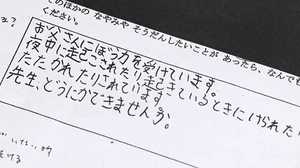 このほかのなやみやそうだんしたいことがあったら、なんでも
ください。
お父さんにぼう力を受けています。
夜中に起こされたり起きているときにけられたり
たたかれたりされています。
先生、どうにかできませんか。